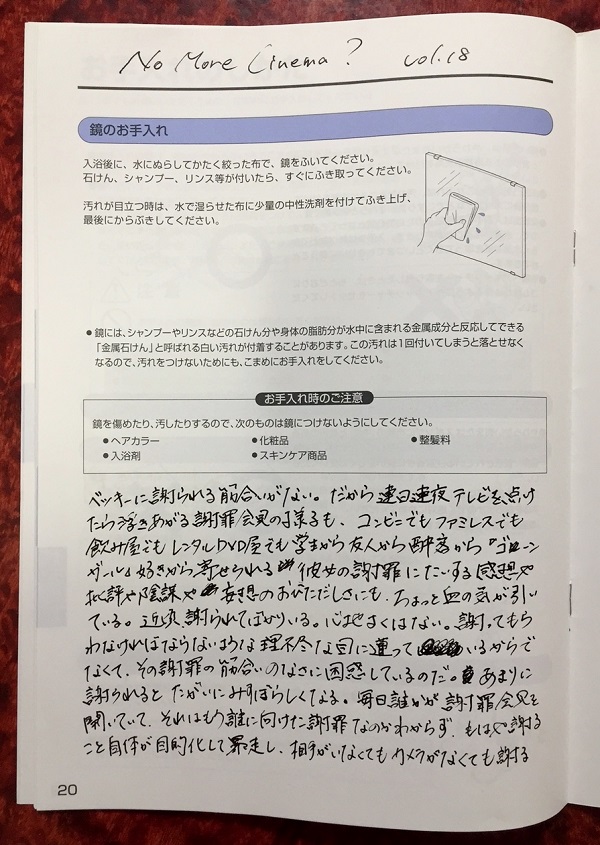 No More Cinema? vol.18
鏡のお手入れ
入浴後に、水にぬらしてかたく絞った布で、鏡をふいてください。
石けん、シャンプー、リンス等が付いたら、すぐにふき取ってください。
汚れが目立つ時は、水で湿らせた布に少量の中性洗剤を付けてふき上げ、
最後にからぶきしてください。
●鏡には、シャンプーやリンスなどの石けん分や身体の脂肪分が水中に含まれる金属成分と反応してできる
「金属石けん」と呼ばれる白い汚れが付着することがあります。この汚れは1回付いてしまうと落とせなく
なるので、汚れをつけないためにも、こまめにお手入れをしてください。
お手入れ時のご注意
鏡を傷めたり、汚したりするので、次のものは鏡につけないようにしてください。
●ヘアカラー ●化粧品 ●整髪料
●入浴剤 ●スキンケア商品
ベッキーに謝られる筋合いがない。だから連日連夜テレビを点け
たら浮きあがる謝罪会見の様も、コンビニでもファミレスでも
飲み屋でもレンタルDVD屋でも学生から友人から酔客から『ゴーン
ガール』好きから寄せられる彼女の謝罪にたいする感想や
批評や陰謀や妄想のおびただしさにも、ちょっと血の気が引い
ている。近頃謝られてばかりいる。心地よくはない。謝ってもら
わなければならないような理不尽な目に遭っているからで
なくて、その謝罪の筋合いのなさに困惑しているのだ。あまりに
謝られるとたがいにみすぼらしくなる。毎日誰かが謝罪会見を
開いていて、それはもう誰に向けた謝罪なのかわからず、もはや謝る
こと自体が目的化して暴走し、相手がいなくてもカメラがなくても謝る
20